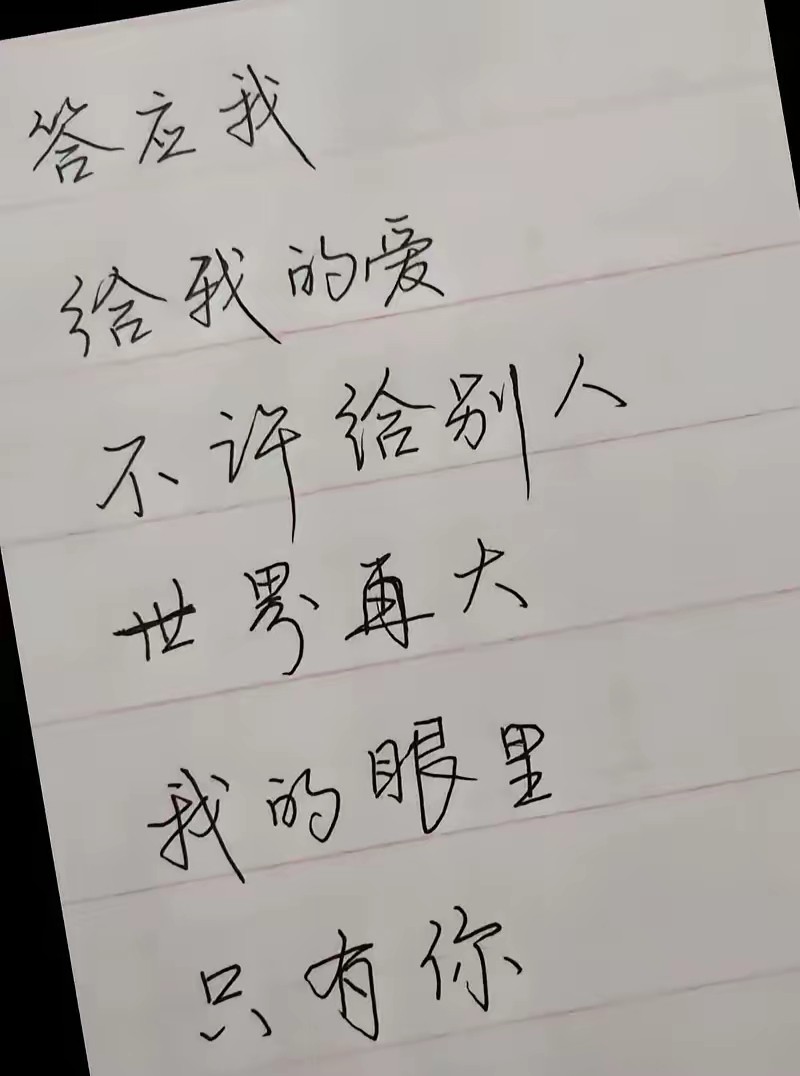 答应我
给我的爱
不许给别人
世界再大
我的眼里
只有你